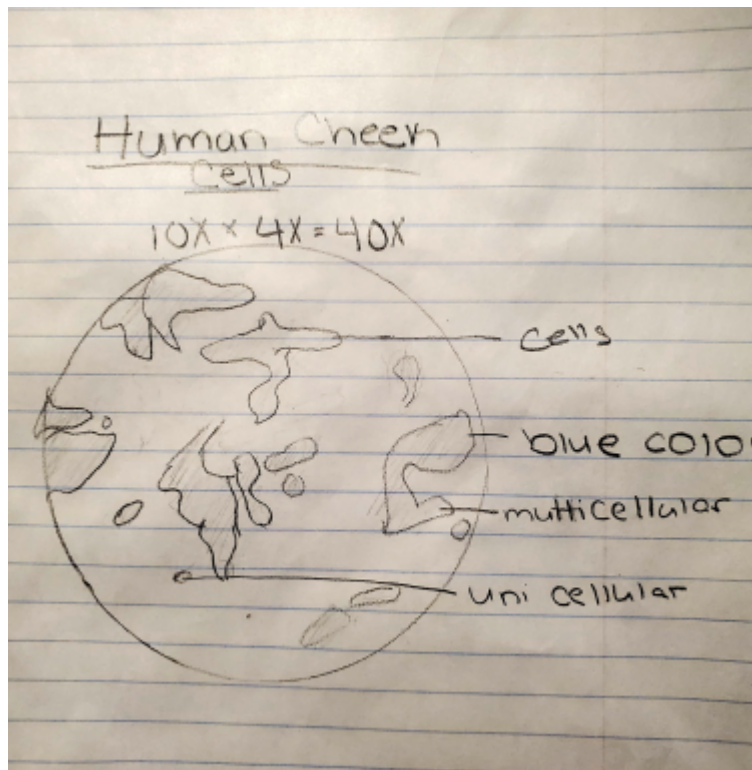 Human Cheek
Cells
10X × 4X = 40X
cells
blue colo
multicellular
uni cellular